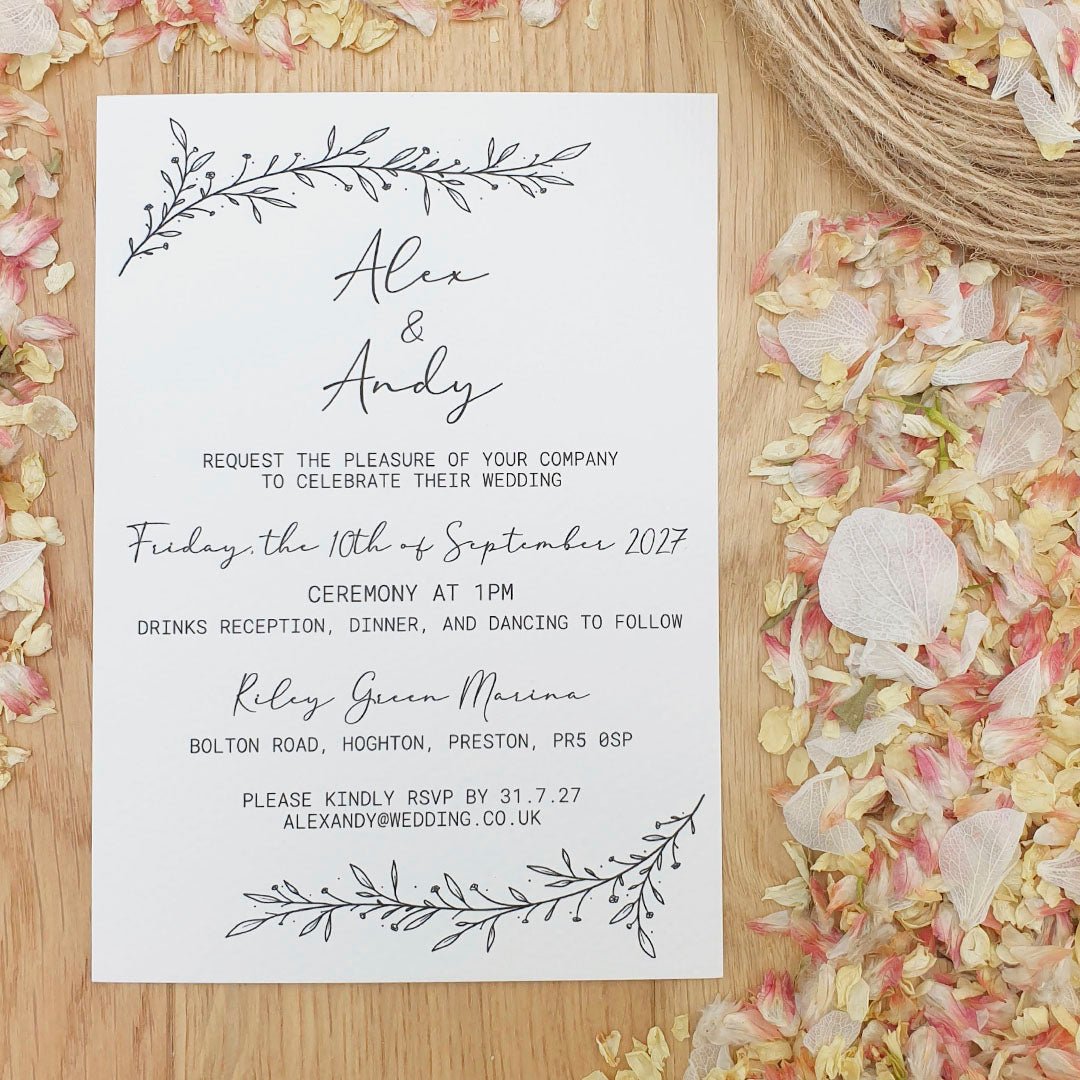 Alex
&
Andy
REQUEST THE PLEASURE OF YOUR COMPANY
TO CELEBRATE THEIR WEDDING
Friday, the 10th of September 2027
CEREMONY AT 1PM
DRINKS RECEPTION, DINNER, AND DANCING TO FOLLOW
Riley Green Marina
BOLTON ROAD, HOGHTON, PRESTON, PR5 0SP
PLEASE KINDLY RSVP BY 31.7.27
ALEXANDY@WEDDING.CO.UK